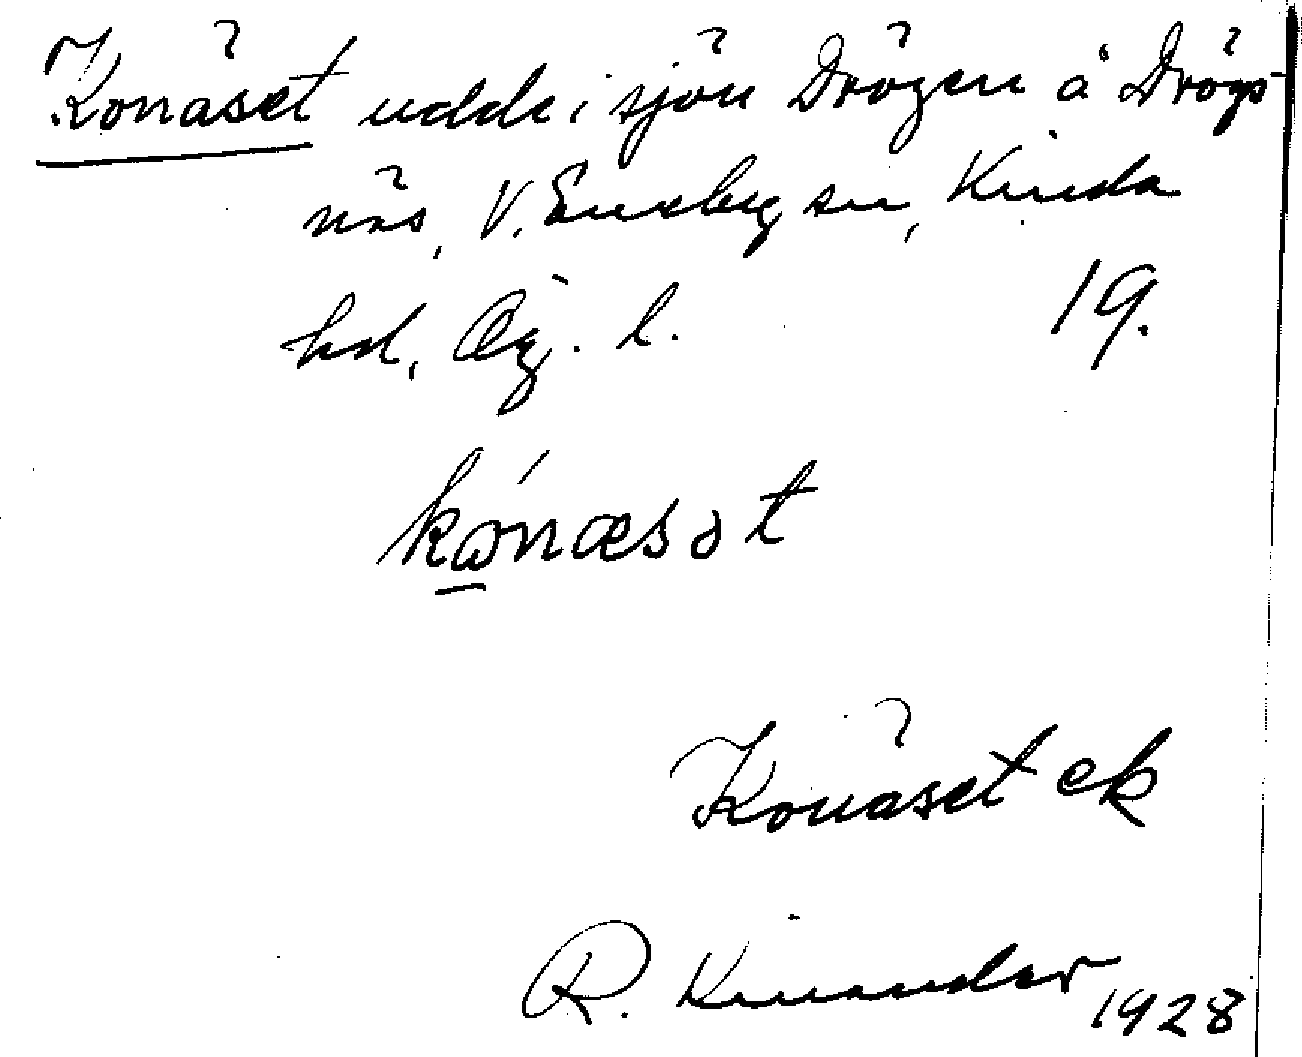 Konäset udde i sjön Drögen å Drögs-
näs, V. Eneby sn, Kinda
hd, Ög. l. 19.
kónæsət
Konäset ek
R. Kinander 1928